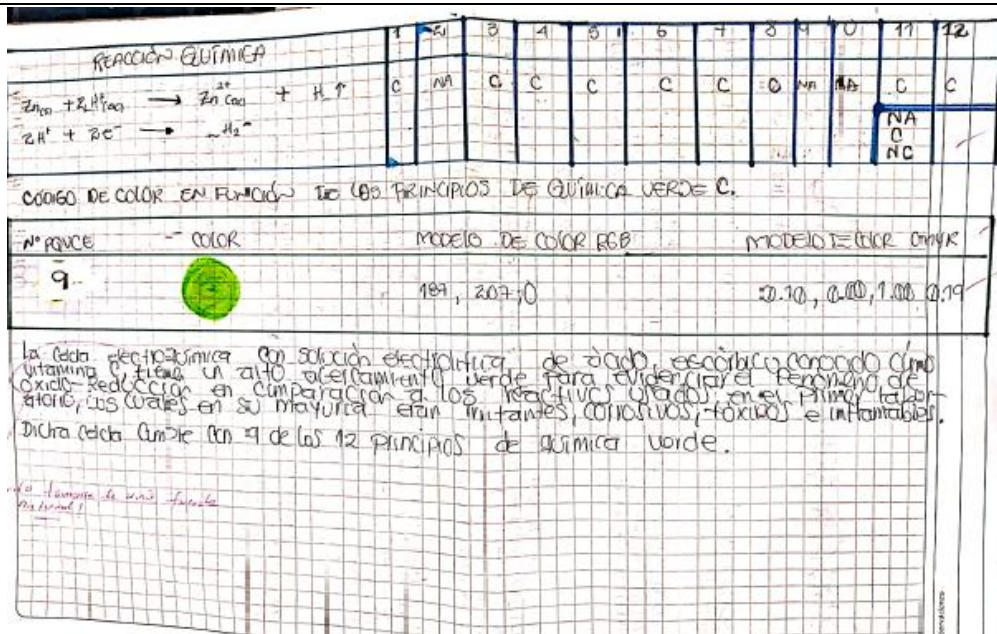 1 2 3 4 5 6 7 8 9 10 11 12
REACCIÓN QUÍMICA
C NA C C C C C C NA NA C C
Zn(s) + 2H⁺(ac) → Zn²⁺(ac) + H ↑
2H⁺ + 2e⁻ → H₂
NA
C
NC
CODIGO DE COLOR EN FUNCIÓN DE LOS PRINCIPIOS DE QUÍMICA VERDE C.
N° PQVCE - COLOR MODELO DE COLOR RGB MODELO DE COLOR CMYK
9 187, 207, 0 0.10, 0.00, 1.00, 0.19
La celda electroquímica con solución electrolítica de ácido ascórbico conocido cómo
vitamina C, tiene un alto acercamiento verde para evidenciar el fenómeno de
oxido-Reducción en comparación a los reactivos usados en el primer labor-
atorio, los cuales en su mayoría eran irritantes, corrosivos, tóxicos e inflamables.
Dicha celda cumple con 9 de los 12 principios de química verde.